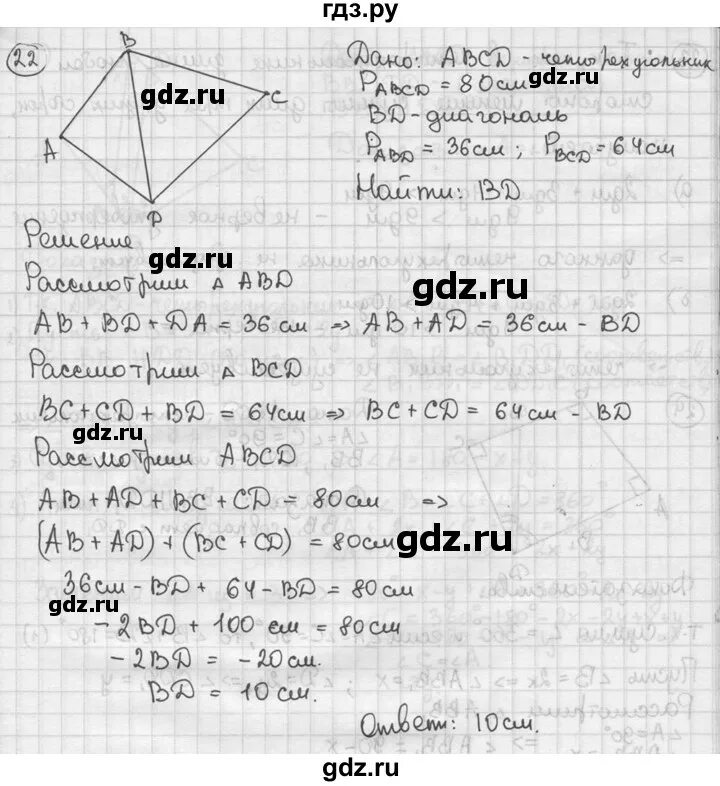 гдз.ру
22
B
C
A
D
Дано: ABCD - четырехугольник
P ABCD = 80 см
BD - диагональ
P ABD = 36 см ; P BCD = 64 см
Найти: BD
Решение
Рассмотрим △ ABD
AB + BD + DA = 36 см ⇒ AB + AD = 36 см - BD
Рассмотрим △ BCD
BC + CD + BD = 64 см ⇒ BC + CD = 64 см - BD
Рассмотрим ABCD
AB + AD + BC + CD = 80 см ⇒
(AB + AD) + (BC + CD) = 80 см
36 см - BD + 64 - BD = 80 см
-2BD + 100 см = 80 см
-2BD = -20 см.
BD = 10 см.
Ответ: 10 см.
gdz.ru
gdz.ru
gdz.ru
gdz.ru
gdz.ru
gdz.ru
gdz.ru
gdz.ru
gdz.ru